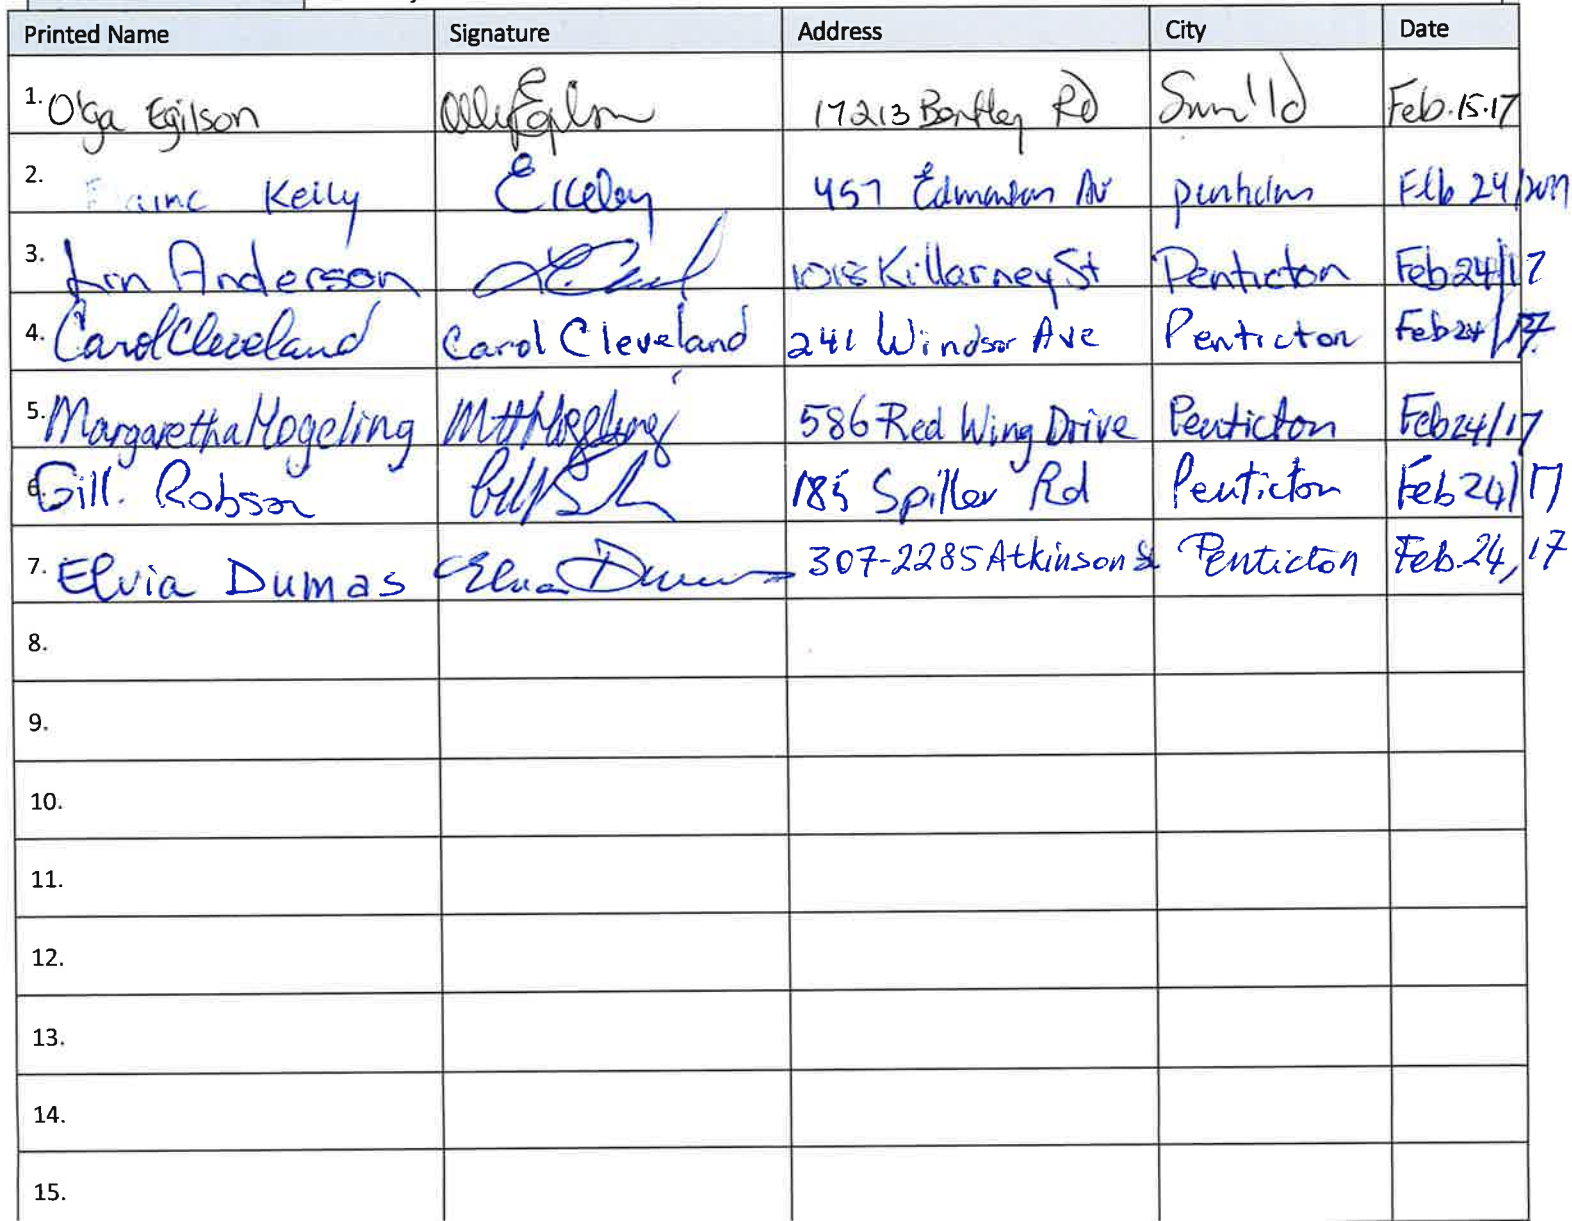 Printed Name Signature Address City Date
1. Olga Egilson 17213 Bentley Rd Sum'ld Feb.15.17
2. Elaine Kelly EKelly 457 Edmonton Av Feb 24/2017
3. Anderson 1018 Killarney St Penticton Feb 24/17
4. Carol Cleveland Carol Cleveland 241 Windsor Ave Penticton Feb 24/17
5. Margaretha Hogeling MHHogeling 586 Red Wing Drive Penticton Feb 24/17
6. Gill. Robson 185 Spiller Rd Penticton Feb 24/17
7. Elvia Dumas Elvia Dumas 307-2285 Atkinson St Penticton Feb.24,17
8.
9.
10.
11.
12.
13.
14.
15.